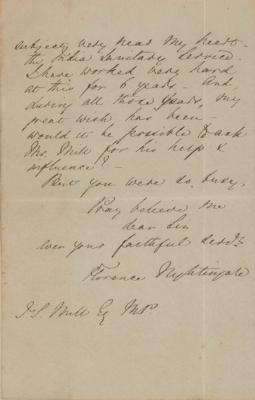 subject very near my heart -
the India Sanitary Service.
I have worked very hard
at this for 6 years. And,
during all those years, my
great wish has been -
would it be possible to ask
Mr. Mill for his help &
influence? -
But you were so busy.
Pray believe me
dear Sir
ever your faithful servt.
Florence Nightingale
J S Mill Esq MP